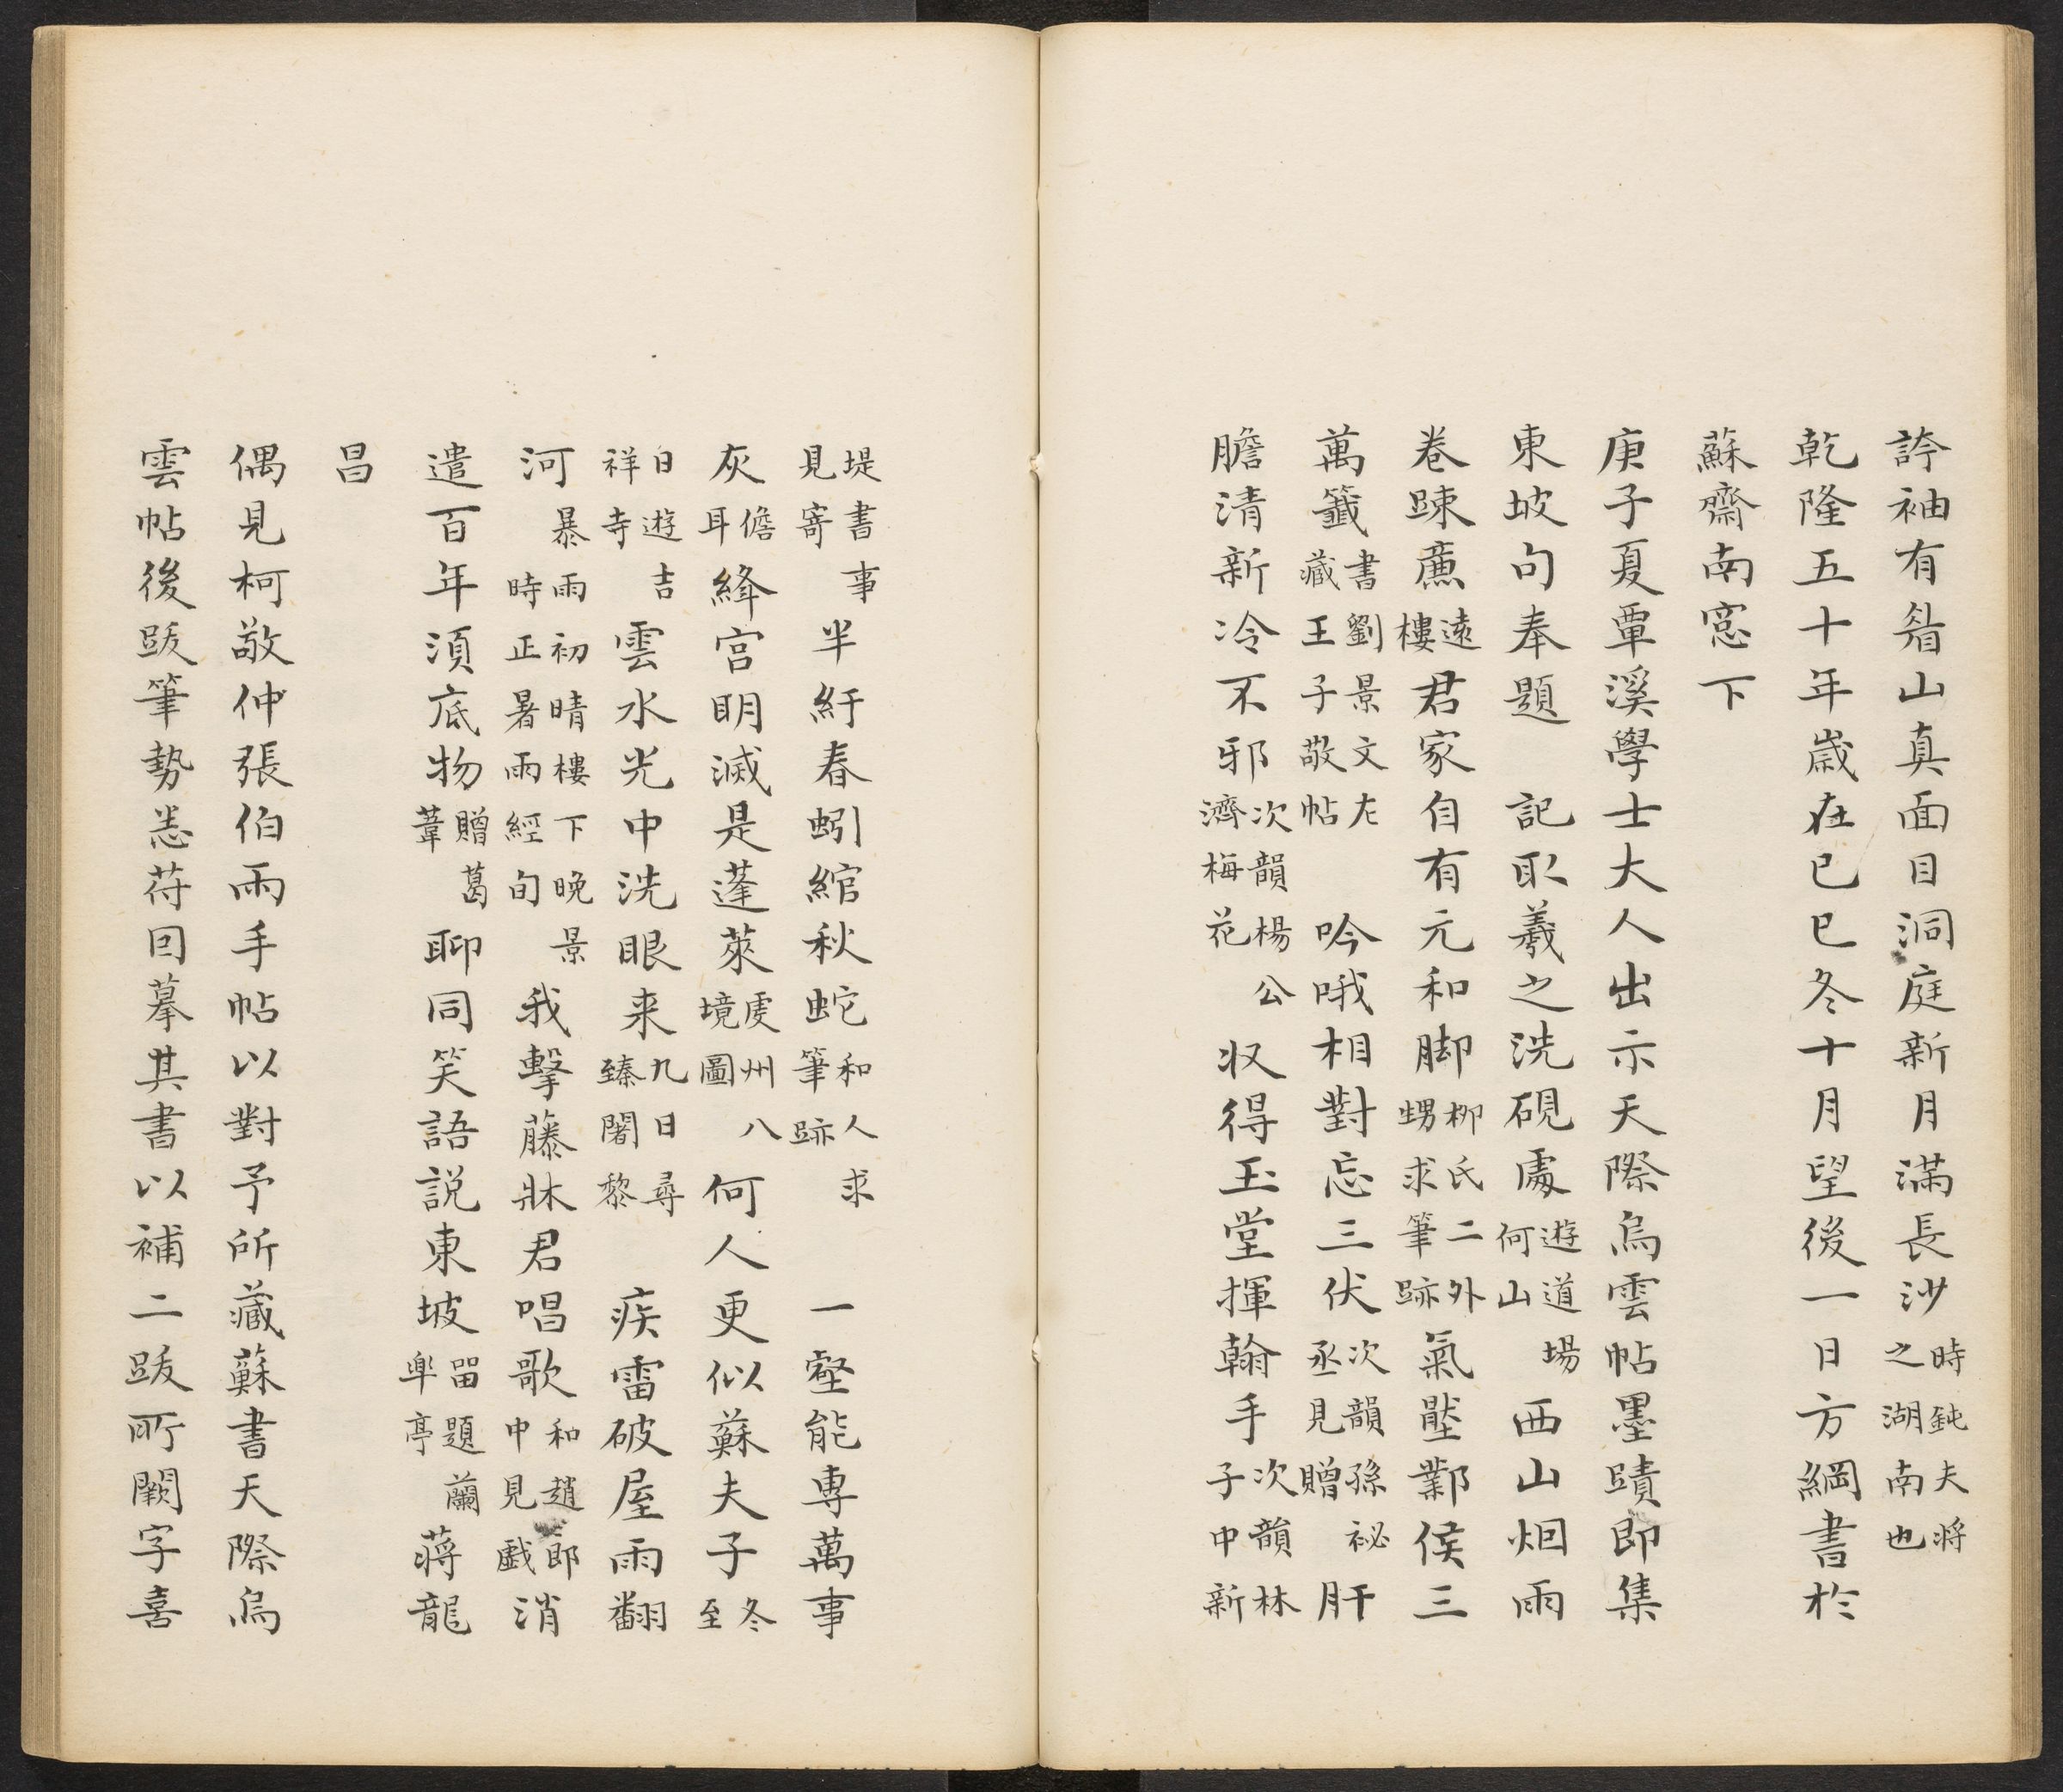 誇袖有眉山真面目洞庭新月滿長沙時鈍夫將之湖南也
乾隆五十年歲在乙巳冬十月望後一日方綱書於
蘇齋南窗下
庚子夏覃溪學士大人出示天際烏雲帖墨蹟即集
東坡句奉題 記取羲之洗硯處遊道場何山 西山烟雨
卷踈薕遠樓君家自有元和脚柳氏二外甥求筆跡氣壓鄴侯三
萬籤書劉景文左藏王子敬帖 吟哦相對忘三伏次韻孫祕丞見贈肝
膽清新冷不邪次韻楊公濟梅花 収得玉堂揮翰手次韻林子中新
堤書事見寄半紆春蚓綰秋蛇和人求筆跡 一壑能專萬事
灰儋耳絳宮明滅是蓬萊虔州八境圖 何人更似蘇夫子冬至
日遊吉祥寺雲水光中洗眼来九日尋臻闍黎 疾雷破屋雨翻
河暴雨初晴樓下晚景時正暑雨經旬我擊藤牀君唱歌和趙郎中見戲消
遣百年須底物贈葛葦聊同笑語説東坡留題蘭皐亭蔣龍
昌
偶見柯敬仲張伯雨手帖以對予所藏蘇書天際烏
雲帖後跋筆勢悉苻因摹其書以補二跋所闕字喜